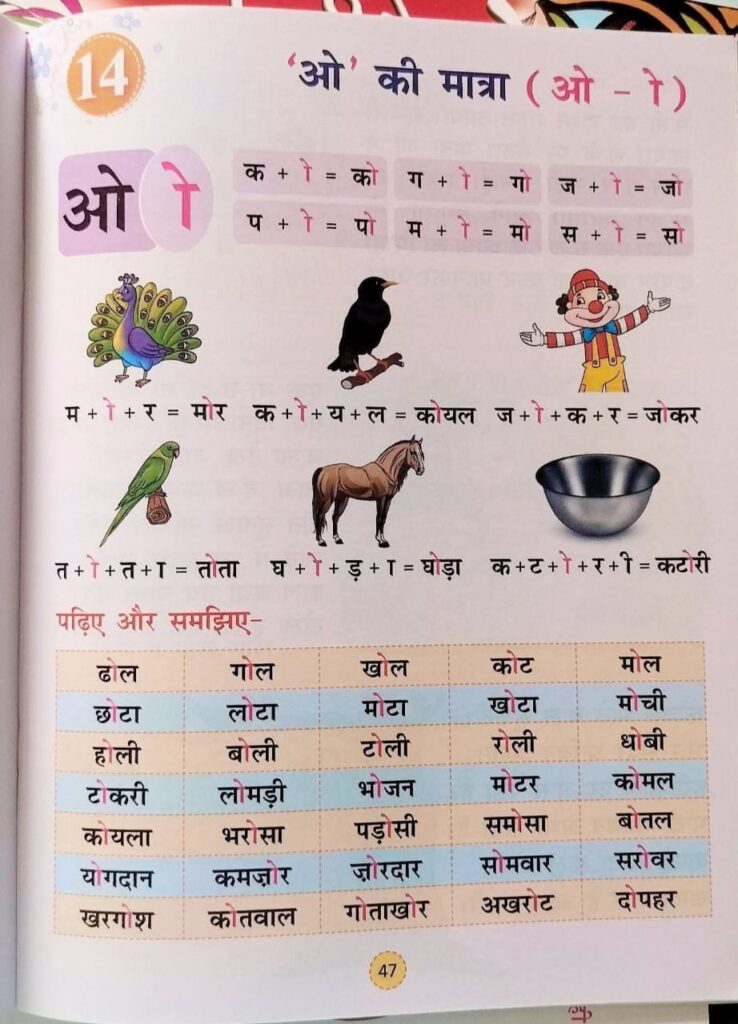 14
'ओ' की मात्रा ( ओ - ो )
ओ ो
क + ो = को ग + ो = गो ज + ो = जो
प + ो = पो म + ो = मो स + ो = सो
म + ो + र = मोर क + ो + य + ल = कोयल ज + ो + क + र = जोकर
त + ो + त + ा = तोता घ + ो + ड़ + ा = घोड़ा क + ट + ो + र + ी = कटोरी
पढ़िए और समझिए-
ढोल गोल खोल कोट मोल
छोटा लोटा मोटा खोटा मोची
होली बोली टोली रोली धोबी
टोकरी लोमड़ी भोजन मोटर कोमल
कोयला भरोसा पड़ोसी समोसा बोतल
योगदान कमज़ोर ज़ोरदार सोमवार सरोवर
खरगोश कोतवाल गोताखोर अखरोट दोपहर
47